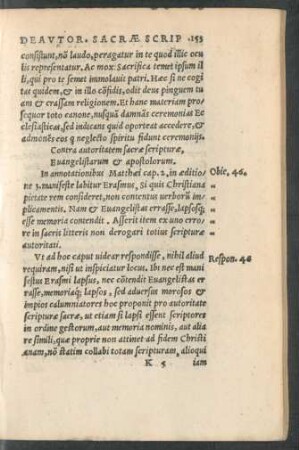 DE AVTOR. SACRÆ SCRIP .153
consistunt, nõ laudo, peragatur in te quod illic ocu
lis repræsentatur. Ac mox: Sacrifica temet ipsum il
li, qui pro te semet immolauit patri. Hæc si ne cogi
tas quidem, & in illo cõfidis, odit deus pinguem tu
am & crassam religionem. Et hanc materiam pro=
sequor toto canone, nusquã damnãs ceremonias Ec
clesiasticas, sed indicans quid oporteat accedere, &
admonẽs eos q̃ neglecto spiritu fidunt ceremonijs.
Contra autoritatem sacræ scripturæ,
Euangelistarum & apostolorum.
In annotationibus Matthæi cap. 2. in æditio Obie. 46.
ne 3. manifeste labitur Erasmus, Si quis Christiana "
pietate rem consideret, non contentus verborũ im= "
plicamentis. Nam & Euangelistas errasse, lapsosq; "
esse memoria contendit. Asserit item ex vno erro= "
re in sacris litteris non derogari totius scripturæ "
autoritati.
Vt ad hoc caput videar respondisse, nihil aliud Respon. 46
requiram, nisi vt inspiciatur locus. Ibi nec est mani
festus Erasmi lapsus, nec cõtendit Euangelistas er
rasse, memoriaq; lapsos, sed aduersus morosos &
impios calumniatores hoc proponit pro autoritate
scripturæ sacræ, vt etiam si lapsi essent scriptores
in ordine gestorum, aut memoria nominis, aut alia
re simili, quæ proprie non attinet ad fidem Christi
anam, nõ statim collabi totam scripturam, alioqui
K 5 iam